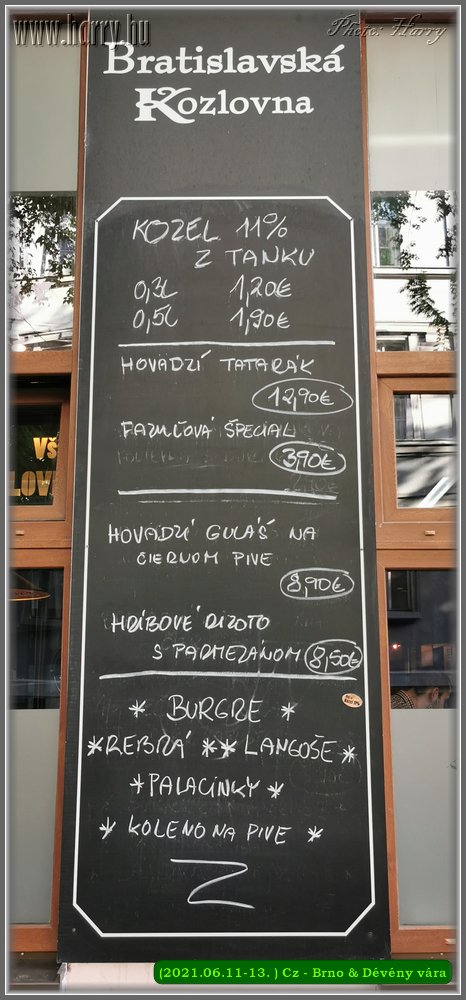 www.harry.hu
Photo: Harry
Bratislavská
Kozlovna
KOZEL 11%
Z TANKU
0,3L 1,20€
0,5L 1,90€
HOVÄDZÍ TATARÁK
12,90€
FAZUĽOVÁ ŠPECIAL
3,90€
HOVÄDZÍ GULÁŠ NA
ČIERNOM PIVE
8,90€
HRÍBOVÉ RIZOTO
S PARMEZÁNOM 8,50€
* BURGRE *
*REBRÁ ** LANGOŠE *
*PALACINKY *
* KOLENO NA PIVE *
VŠ
LOV
(2021.06.11-13. ) Cz - Brno & Dévény vára